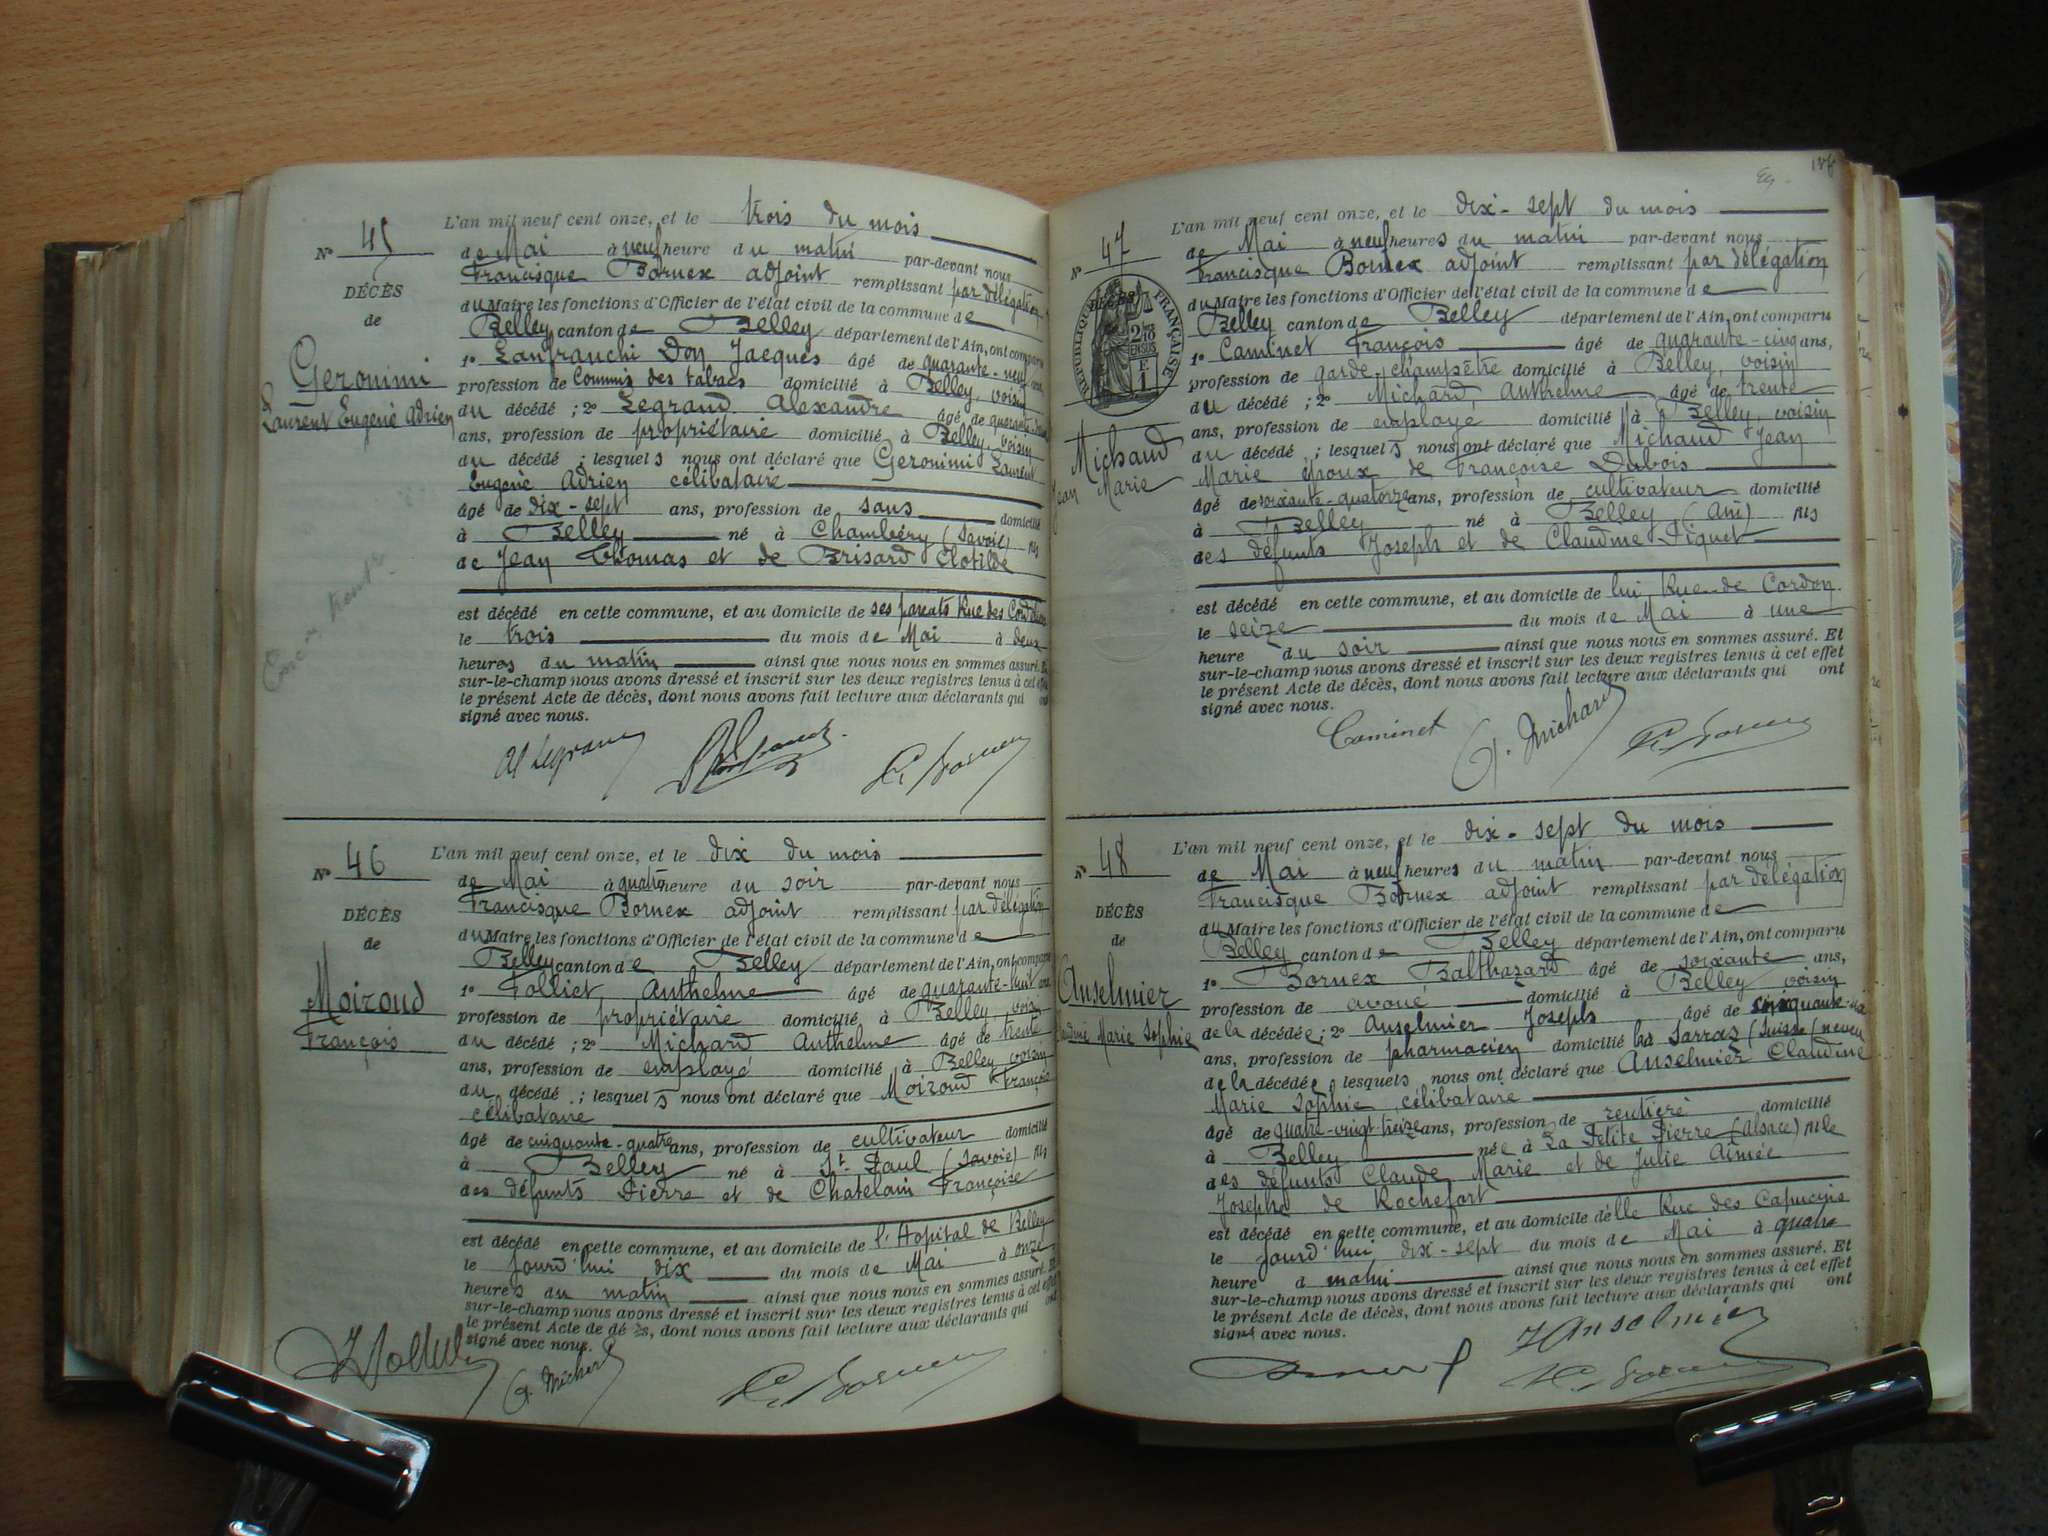 L'an mil neuf cent onze, et le trois du mois
Nº 45
de Mai à neuf heure du matin par-devant nous
Francisque Bornex adjoint remplissant par délégation
DÉCÈS
du Maire les fonctions d'Officier de l'état civil de la commune de
de
Belley canton de Belley département de l'Ain, ont comparu
1º Lanfranchi Don Jacques âgé de quarante-neuf ans,
Geronimi
profession de Commis des tabacs domicilié à Belley, voisin
Laurent Eugène Adrien
du décédé ; 2º Legrand Alexandre âgé de quarante
ans, profession de propriétaire domicilié à Belley, voisin
du décédé ; lesquels nous ont déclaré que Geronimi Laurent
Eugène Adrien célibataire
âgé de dix-sept ans, profession de sans domicilié
à Belley né à Chambéry (Savoie) fils
de Jean Thomas et de Brisard Clotilde
est décédé en cette commune, et au domicile de ses parents Rue des Cordeliers
le trois du mois de Mai à deux
heures du matin ainsi que nous nous en sommes assuré. Et
sur-le-champ nous avons dressé et inscrit sur les deux registres tenus à cet effet
le présent Acte de décès, dont nous avons fait lecture aux déclarants qui ont
signé avec nous.
Al Legrand
Fr Bornex
L'an mil neuf cent onze, et le dix du mois
Nº 46
de Mai à quatre heure du soir par-devant nous
Francisque Bornex adjoint remplissant par délégation
DÉCÈS
du Maire les fonctions d'Officier de l'état civil de la commune de
de
Belley canton de Belley département de l'Ain, ont comparu
1º Folliet Anthelme âgé de quarante-huit ans
Moiroud
profession de propriétaire domicilié à Belley, voisin
François
du décédé ; 2º Michard Anthelme âgé de trente
ans, profession de employé domicilié à Belley voisin
du décédé ; lesquels nous ont déclaré que Moiroud François
célibataire
âgé de cinquante-quatre ans, profession de cultivateur domicilié
à Belley né à St Paul (Savoie) fils
des défunts Pierre et de Chatelain Françoise
est décédé en cette commune, et au domicile de l'Hopital de Belley
le jourd'hui dix du mois de Mai à onze
heures du matin ainsi que nous nous en sommes assuré. Et
sur-le-champ nous avons dressé et inscrit sur les deux registres tenus à cet effet
le présent Acte de décès, dont nous avons fait lecture aux déclarants qui ont
signé avec nous.
A. Michard
Fr Bornex
L'an mil neuf cent onze, et le dix-sept du mois
Nº 47
de Mai à neuf heures du matin par-devant nous
Francisque Bornex adjoint remplissant par délégation
DÉCÈS
RÉPUBLIQUE FRANÇAISE
du Maire les fonctions d'Officier de l'état civil de la commune de
Belley canton de Belley département de l'Ain, ont comparu
1º Caminet François âgé de quarante-cinq ans,
profession de garde-champêtre domicilié à Belley, voisin
du décédé ; 2º Michard, Anthelme âgé de trente
ans, profession de employé domicilié à Belley, voisin
Michaud
du décédé ; lesquels nous ont déclaré que Michaud Jean
Jean Marie
Marie époux de Françoise Dubois
âgé de soixante-quatorze ans, profession de cultivateur domicilié
à Belley né à Belley (Ain) fils
des défunts Joseph et de Claudine Piquet
est décédé en cette commune, et au domicile de lui, Rue de Cordon
le seize du mois de Mai à une
heure du soir ainsi que nous nous en sommes assuré. Et
sur-le-champ nous avons dressé et inscrit sur les deux registres tenus à cet effet
le présent Acte de décès, dont nous avons fait lecture aux déclarants qui ont
signé avec nous.
Caminet
A. Michard
Fr Bornex
L'an mil neuf cent onze, et le dix-sept du mois
Nº 48
de Mai à neuf heures du matin par-devant nous
Francisque Bornex adjoint remplissant par délégation
DÉCÈS
du Maire les fonctions d'Officier de l'état civil de la commune de
de
Belley canton de Belley département de l'Ain, ont comparu
1º Bornex Balthazard âgé de soixante ans,
Anselmier
profession de avoué domicilié à Belley voisin
Claudine Marie Sophie
de la décédée ; 2º Anselmier Joseph âgé de cinquante-six
ans, profession de pharmacien domicilié La Sarraz (Suisse) neveu
de la décédée lesquels nous ont déclaré que Anselmier Claudine
Marie Sophie célibataire
âgé de quatre-vingt-treize ans, profession de rentière domicilié
à Belley née à La Petite Pierre (Alsace) fille
des défunts Claude Marie et de Julie Aimée
Josephe de Rochefort
est décédé en cette commune, et au domicile d'elle Rue des Capucins
le jourd'hui dix-sept du mois de Mai à quatre
heure d matin ainsi que nous nous en sommes assuré. Et
sur-le-champ nous avons dressé et inscrit sur les deux registres tenus à cet effet
le présent Acte de décès, dont nous avons fait lecture aux déclarants qui ont
signé avec nous.
J Anselmier
Fr Bornex